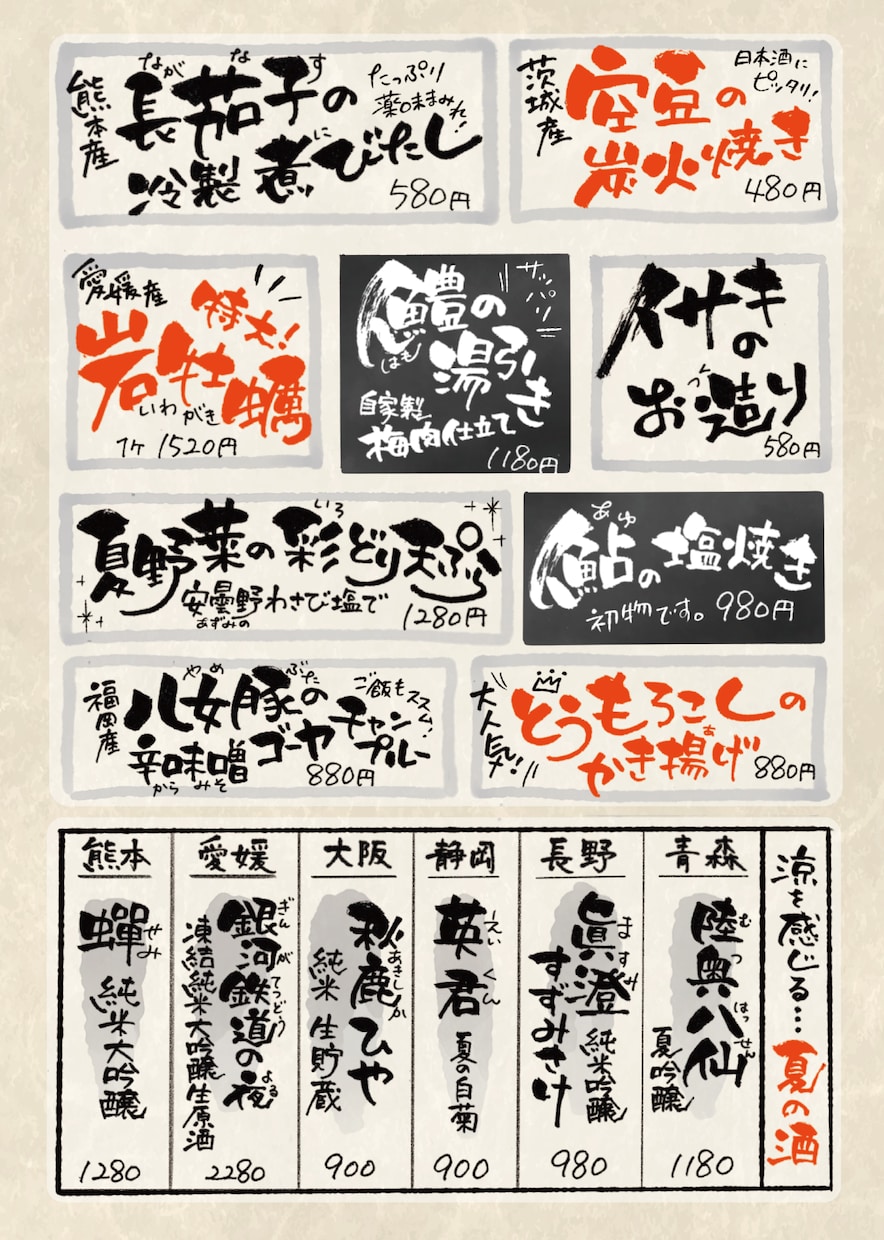 熊本産
長茄子の
ながなす
冷製煮びたし
に
たっぷり
薬味まみれ!
580円
茨城産
空豆の
炭火焼き
日本酒に
ピッタリ!
480円
愛媛産
特大!
岩牡蠣
いわがき
1ケ 1520円
鱧の
はも
湯引き
サッパリ
自家製
梅肉仕立て
1180円
イサキ
の
お造り
つく
580円
夏野菜の彩どり天ぷら
いろ
安曇野わさび塩で
あずみの
1280円
鮎の塩焼き
あゆ
初物です。980円
福岡産
八女豚の
やめぶた
辛味噌ゴーヤチャンプルー
からみそ
ご飯もススム!
880円
大人気!
とうもろこしの
かき揚げ
あ
880円
涼を感じる…夏の酒
青森
陸奥八仙
むつはっせん
夏吟醸
1180
長野
眞澄
ますみ
すずみさけ
純米吟醸
980
静岡
英君
えいくん
夏の白菊
900
大阪
秋鹿ひや
あきしか
純米 生貯蔵
900
愛媛
銀河鉄道の夜
ぎんがてつどう よる
凍結純米大吟醸生原酒
2280
熊本
蟬
せみ
純米大吟醸
1280